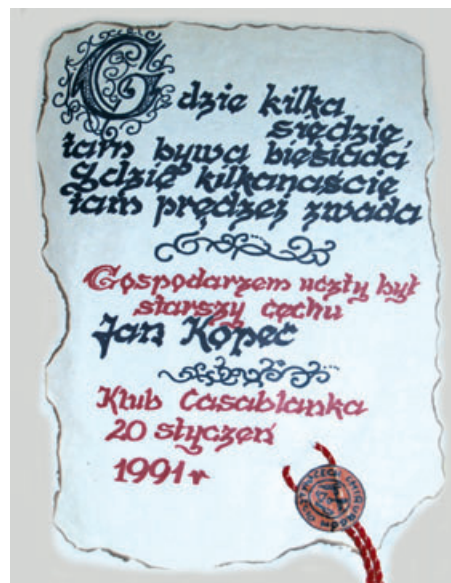 Gdzie kilka
siędzie
tam bywa biesiada
Gdzie kilkanaście
tam prędzej zwada
Gospodarzem uczty był
starszy cechu
Jan Kopeć
Klub Casablanka
20 styczeń
1991 r